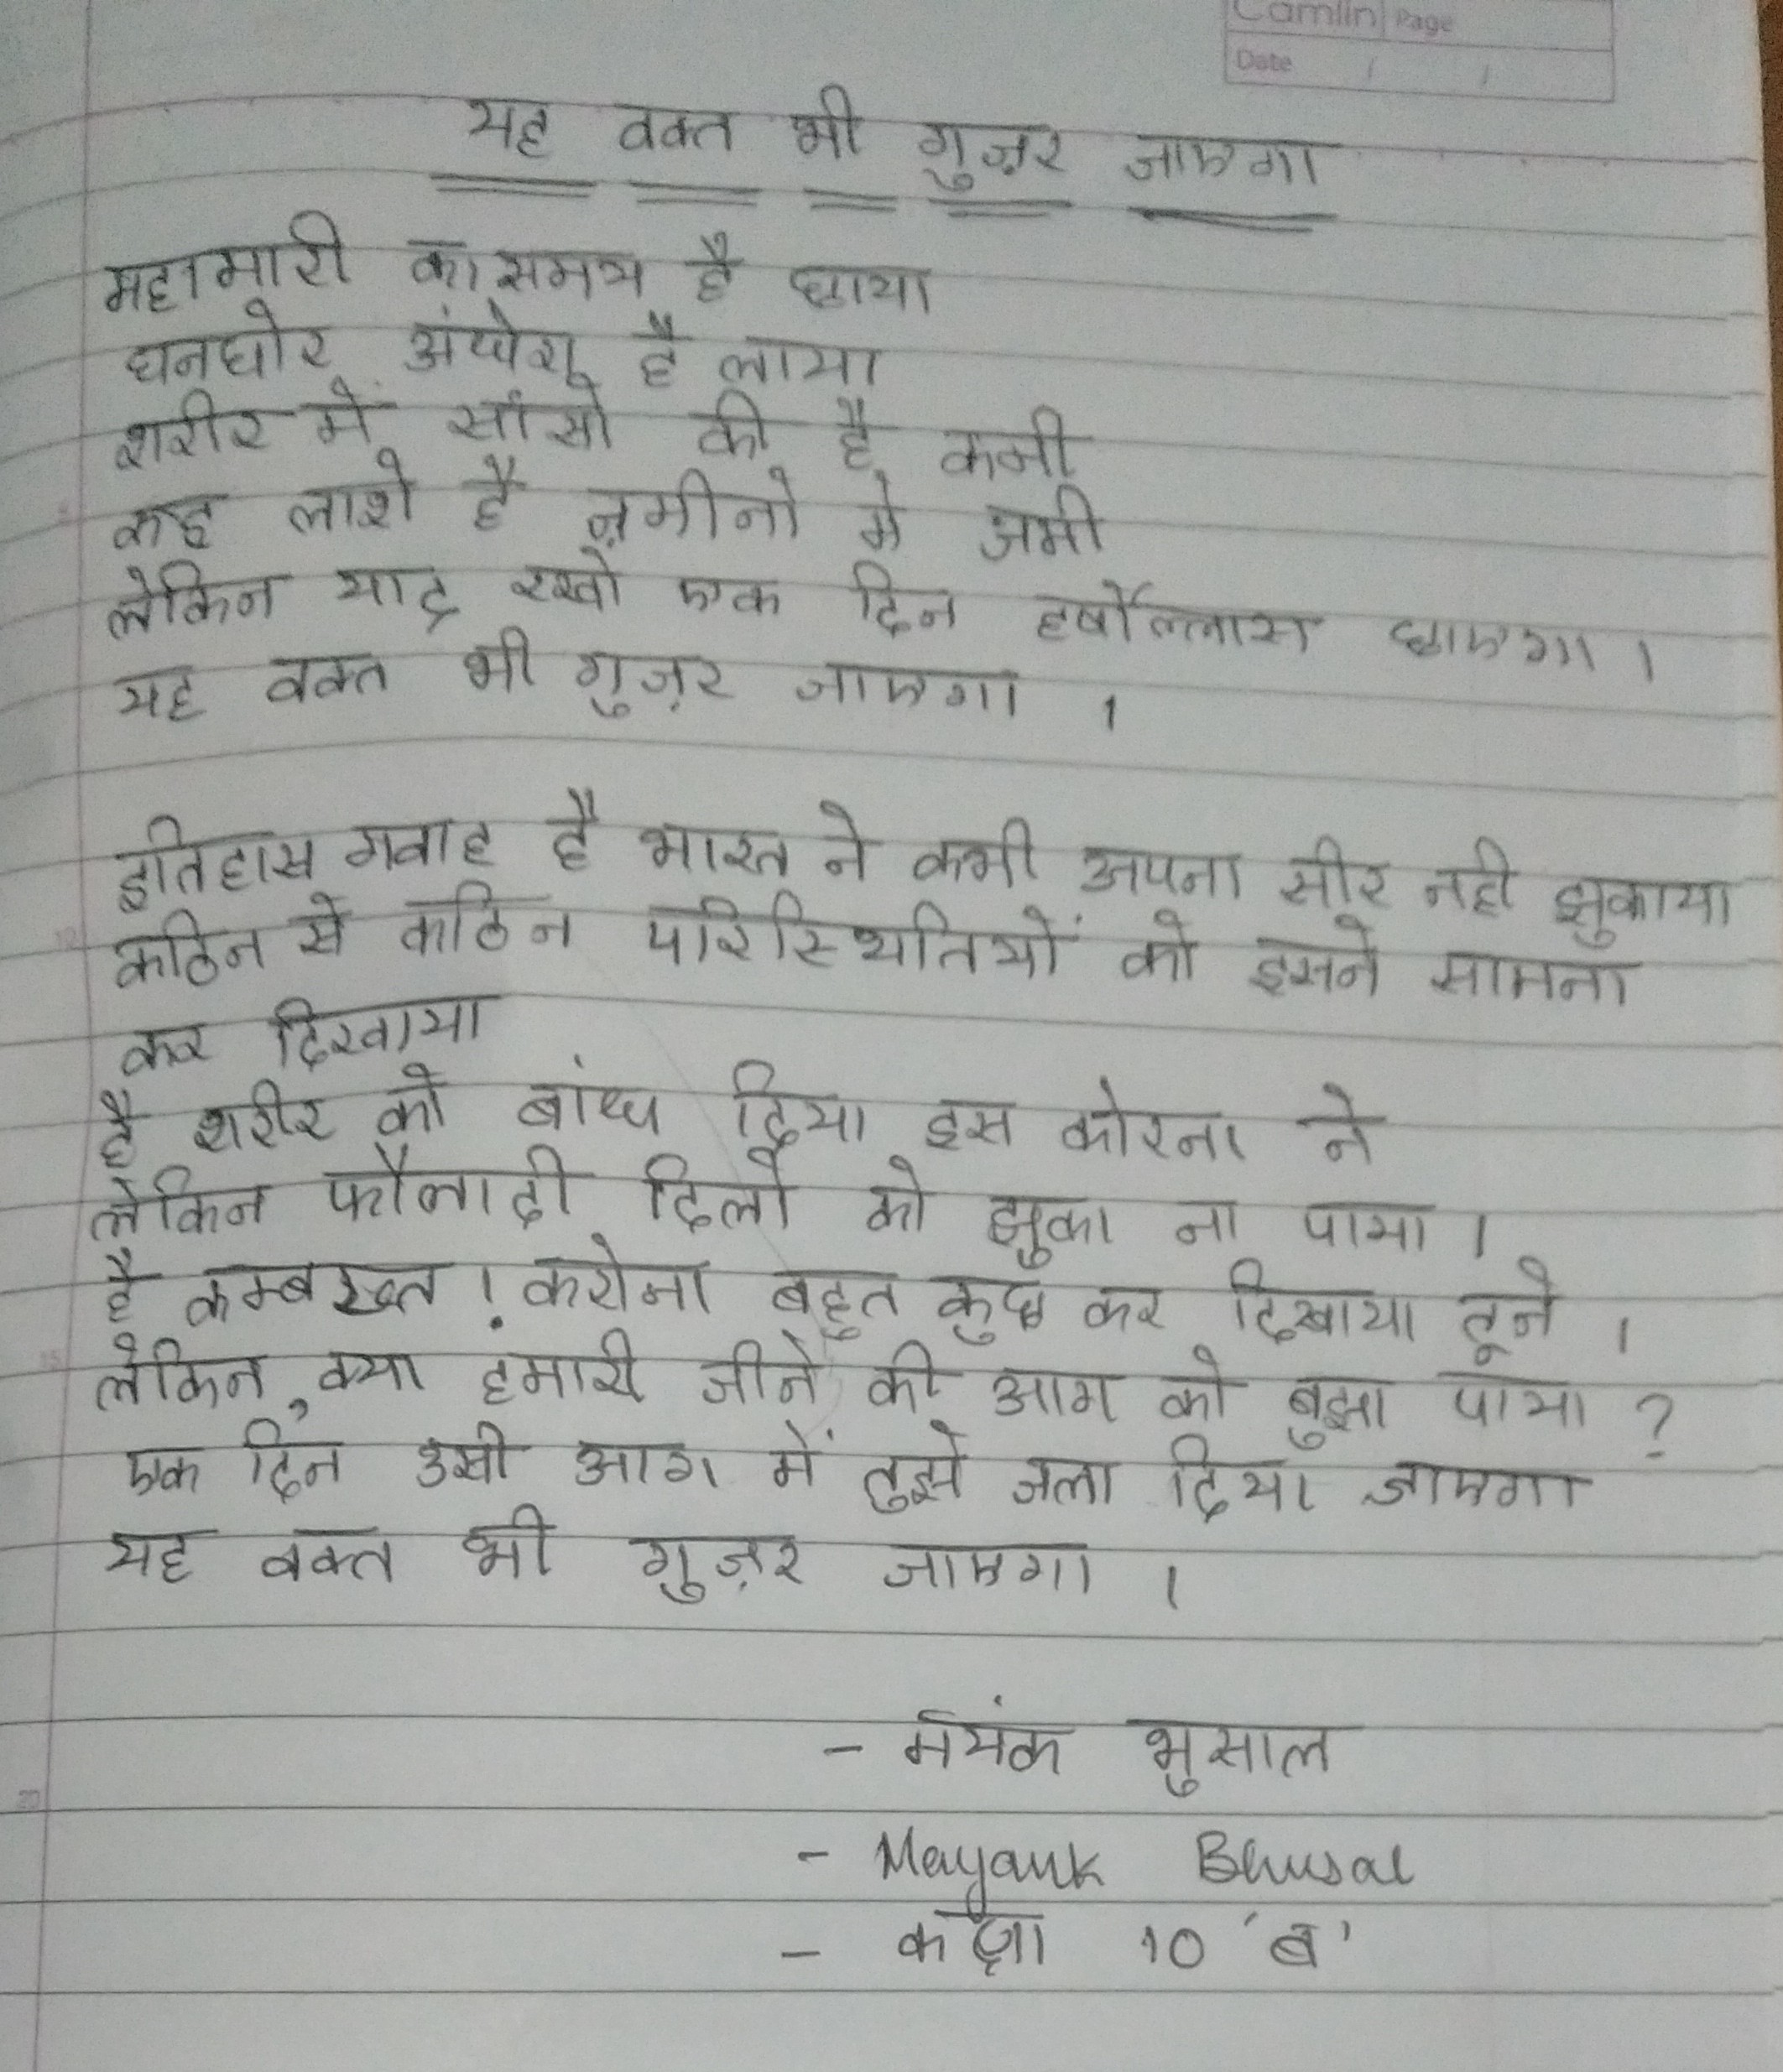 Camlin Page
Date / /
यह वक्त भी गुज़र जाएगा
महामारी का समय है छाया
घनघोर अंधेरा है लाया
शरीर में सांसो की है कमी
कइ लाशे है ज़मीनो मे जमी
लेकिन याद रखो एक दिन हर्षोल्लास छाएगा ।
यह वक्त भी गुज़र जाएगा ।
इतिहास गवाह है भारत ने कभी अपना सीर नही झुकाया
कठिन से कठिन परिस्थितियों को इसने सामना
कर दिखाया
है शरीर को बांध दिया इस कोरना ने
लेकिन फौलादी दिलो को झुका ना पाया ।
है कम्बख्त ! करोना बहुत कुछ कर दिखाया तूने ।
लेकिन, क्या हमारी जीने की आग को बुझा पाया ?
एक दिन उसी आग में तुझे जला दिया जाएगा
यह वक्त भी गुज़र जाएगा ।
- मयंक भुसाल
- Mayank Bhusal
- कक्षा 10 'ब'
15
20